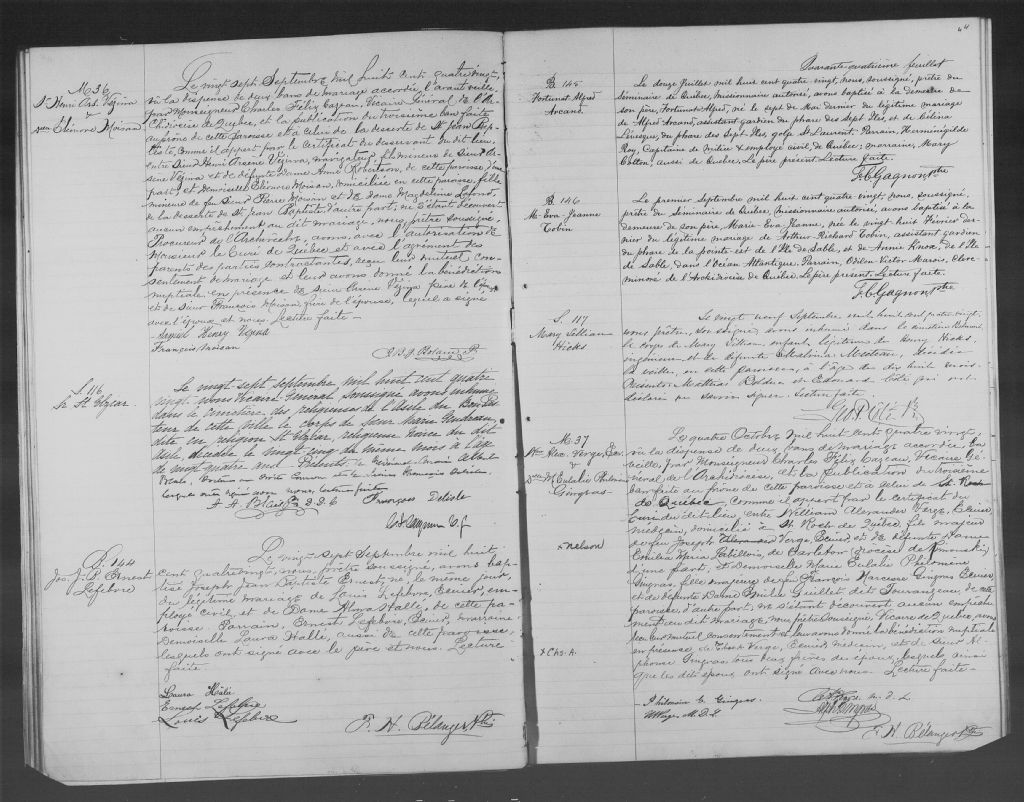 M 36
St Henri Ars. Vézina
&
Dlle Eléonore Moisan
Le vingt sept Septembre mil huit cent quatre vingt,
vû la dispense de deux bans de mariage accordée, l'avant veille,
par Monseigneur Charles Félix Cazeau, Vicaire Général de l'Ar-
chidiocèse de Québec, et la publication du troisième ban faite
au prône de cette paroisse et à celui de la desserte de St Jean Bap-
tiste, comme il appert par le certificat du desservant du dit lieu,
entre Sieur Henri Arsène Vézina, navigateur, fils mineur de Sieur Ar-
sène Vézina et de défunte Dame Anne Robertson, de cette paroisse, d'une
part; et Demoiselle Eléonore Moisan, domiciliée en cette paroisse, fille
mineure de feu Sieur Pierre Moisan et de Dame Magdeleine Lafond,
de la desserte de St Jean Baptiste, d'autre part; ne s'étant découvert
aucun empêchement au dit mariage, nous, prêtre soussigné,
Procureur de l'Archevêché, avons, avec l'autorisation de
Monsieur le Curé de Québec, et avec l'agrément des
parents des parties contractantes, reçu leur mutuel con-
sentement de mariage et leur avons donné la bénédiction
nuptiale: en présence de Sieur Arsène Vézina père de l'époux
et de Sieur François Moisan, frère de l'épouse, lequel a signé
avec l'époux et nous. Lecture faite -
Henry Vézina
François Moisan
S. 116
Sr St Elzéar
Le vingt sept septembre, mil huit cent quatre
vingt, nous Vicaire Général soussigné avons inhumé
dans le cimetière des religieuses de l'Asile du Bon Pas-
teur de cette ville le corps de Sœur Marie Gendreau,
dite en religion St Elzéar, religieuse novice du dit
Asile, décédée le vingt cinq du même mois à l'âge
de vingt quatre ans. Présents
lesquels ont signé avec nous, lecture faite.
François Delisle
B. 144
Jos. J. B. Ernest
Lefebvre
Le vingt sept Septembre mil huit
cent quatre vingt, nous, prêtre soussigné, avons bap-
tisé Joseph, Jean Baptiste Ernest, né le même jour,
du légitime mariage de Louis Lefebvre, Ecuier, em-
ployé civil, et de Dame Halle, de cette pa-
roisse. Parrain, Ernest Lefebvre, Ecuier, marraine
Demoiselle Laura Halle, aussi de cette paroisse,
lesquels ont signé avec le père et nous. Lecture
faite.
Laura Hâlé
Ernest Lefebvre
Louis Lefebvre
F. H. Bélanger Ptre
44
Quarante-quatrième feuillet
B. 145
Fortunat Alfred
Arcand.
Le douze Juillet mil huit cent quatre vingt, nous, soussigné, prêtre du
Séminaire de Québec, missionnaire autorisé, avons baptisé à la demeure de
son père, Fortunat Alfred, né le sept de Mai dernier du légitime mariage
de Alfred Arcand, assistant gardien du phare des Sept Iles, et de Célina
Lévesque, du phare des Sept Iles, golfe St Laurent. Parrain, Herménégilde
Roy, Capitaine de milice & employé civil, de Québec; marraine, Mary
Cotton, aussi de Québec. Le père présent. Lecture faite.
F. C. Gagnon Ptre
B. 146
M. Eva Jeanne
Tobin
Le premier Septembre mil huit cent quatre vingt, nous, soussigné,
prêtre du Séminaire de Québec, missionnaire autorisé, avons baptisé à la
demeure de son père, Marie Eva Jeanne, née le vingt huit Février der-
nier du légitime mariage de Arthur Richard Tobin, assistant gardien
du phare de la pointe est de l'Ile de Sable, et de Annie Knox, de l'Ile
de Sable, dans l'Océan Atlantique. Parrain, Odilon Victor Marois, clerc-
minoré de l'Archidiocèse de Québec. Le père présent. Lecture faite.
F. C. Gagnon Ptre
S. 117
Mary Lillian
Hicks
Le vingt neuf Septembre mil huit cent quatre vingt,
nous prêtre, soussigné, avons inhumé dans le cimetière Belmont,
le corps de Mary Lillian, enfant légitime de Henry Hicks,
ingénieur, et de défunte décédée
la veille, en cette paroisse, à l'âge de dix huit mois.
Présents Mathias et Edouard Côté qui ont
déclaré ne savoir signer. Lecture faite.
M. 37
Wm Alex. Verge, Ecr
&
Dlle M. Eulalie Philomène
Gingras
Le quatre Octobre mil huit cent quatre vingt,
vû la dispense de deux bans de mariage accordée, la
veille, par Monseigneur Charles Félix Cazeau, Vicaire Gé-
néral de l'Archidiocèse, et la publication du troisième
ban faite au prône de cette paroisse et à celui de St Roch
de Québec, comme il appert par le certificat du
Curé du dit lieu, entre William Alexander Verge, Ecuier,
médecin, domicilié à St Roch de Québec, fils majeur
de feu Joseph Alexander Verge, Ecuier, et de défunte Dame
x Nelson
de Carleton (diocèse de Rimouski)
d'une part, et Demoiselle Marie Eulalie Philomène
Gingras, fille majeure de feu François Narcisse Gingras Ecuier,
et de défunte Dame Emilie Guillet dit Tourangeau, de cette
paroisse, d'autre part; ne s'étant découvert aucun empêche-
ment au dit mariage, nous prêtre soussigné, Vicaire de Québec, avons
reçu leur mutuel consentement et leur avons donné la bénédiction nuptiale
en présence de Verge, Ecuier, médecin, et de Sieur Al-
phonse Gingras tous deux frères des époux, lesquels ainsi
que les dits époux ont signé avec nous. Lecture faite -
x Chs. A.
Philomène E. Gingras
F. H. Bélanger Ptre